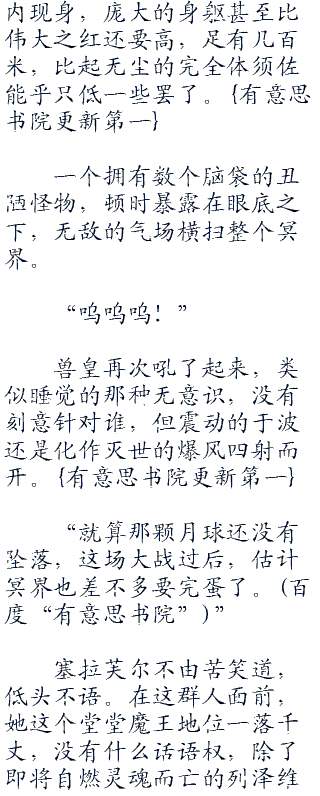 内现身，庞大的身躯甚至比
伟大之红还要高，足有几百
米，比起无尘的完全体须佐
能乎只低一些罢了。{有意思
书院更新第一}
一个拥有数个脑袋的丑
陋怪物，顿时暴露在眼底之
下，无敌的气场横扫整个冥
界。
“呜呜呜！”
兽皇再次吼了起来，类
似睡觉的那种无意识，没有
刻意针对谁，但震动的于波
还是化作灭世的爆风四射而
开。{有意思书院更新第一}
“就算那颗月球还没有
坠落，这场大战过后，估计
冥界也差不多要完蛋了。(百
度“有意思书院”)”
塞拉芙尔不由苦笑道，
低头不语。在这群人面前，
她这个堂堂魔王地位一落千
丈，没有什么话语权，除了
即将自燃灵魂而亡的列泽维